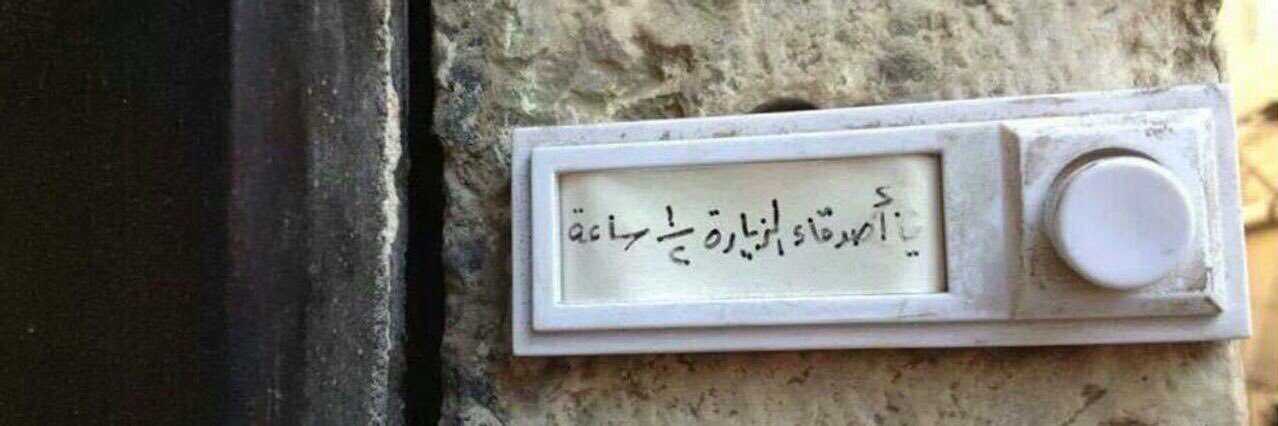 يا أصدقاء الزيارة ١/٢ ساعة